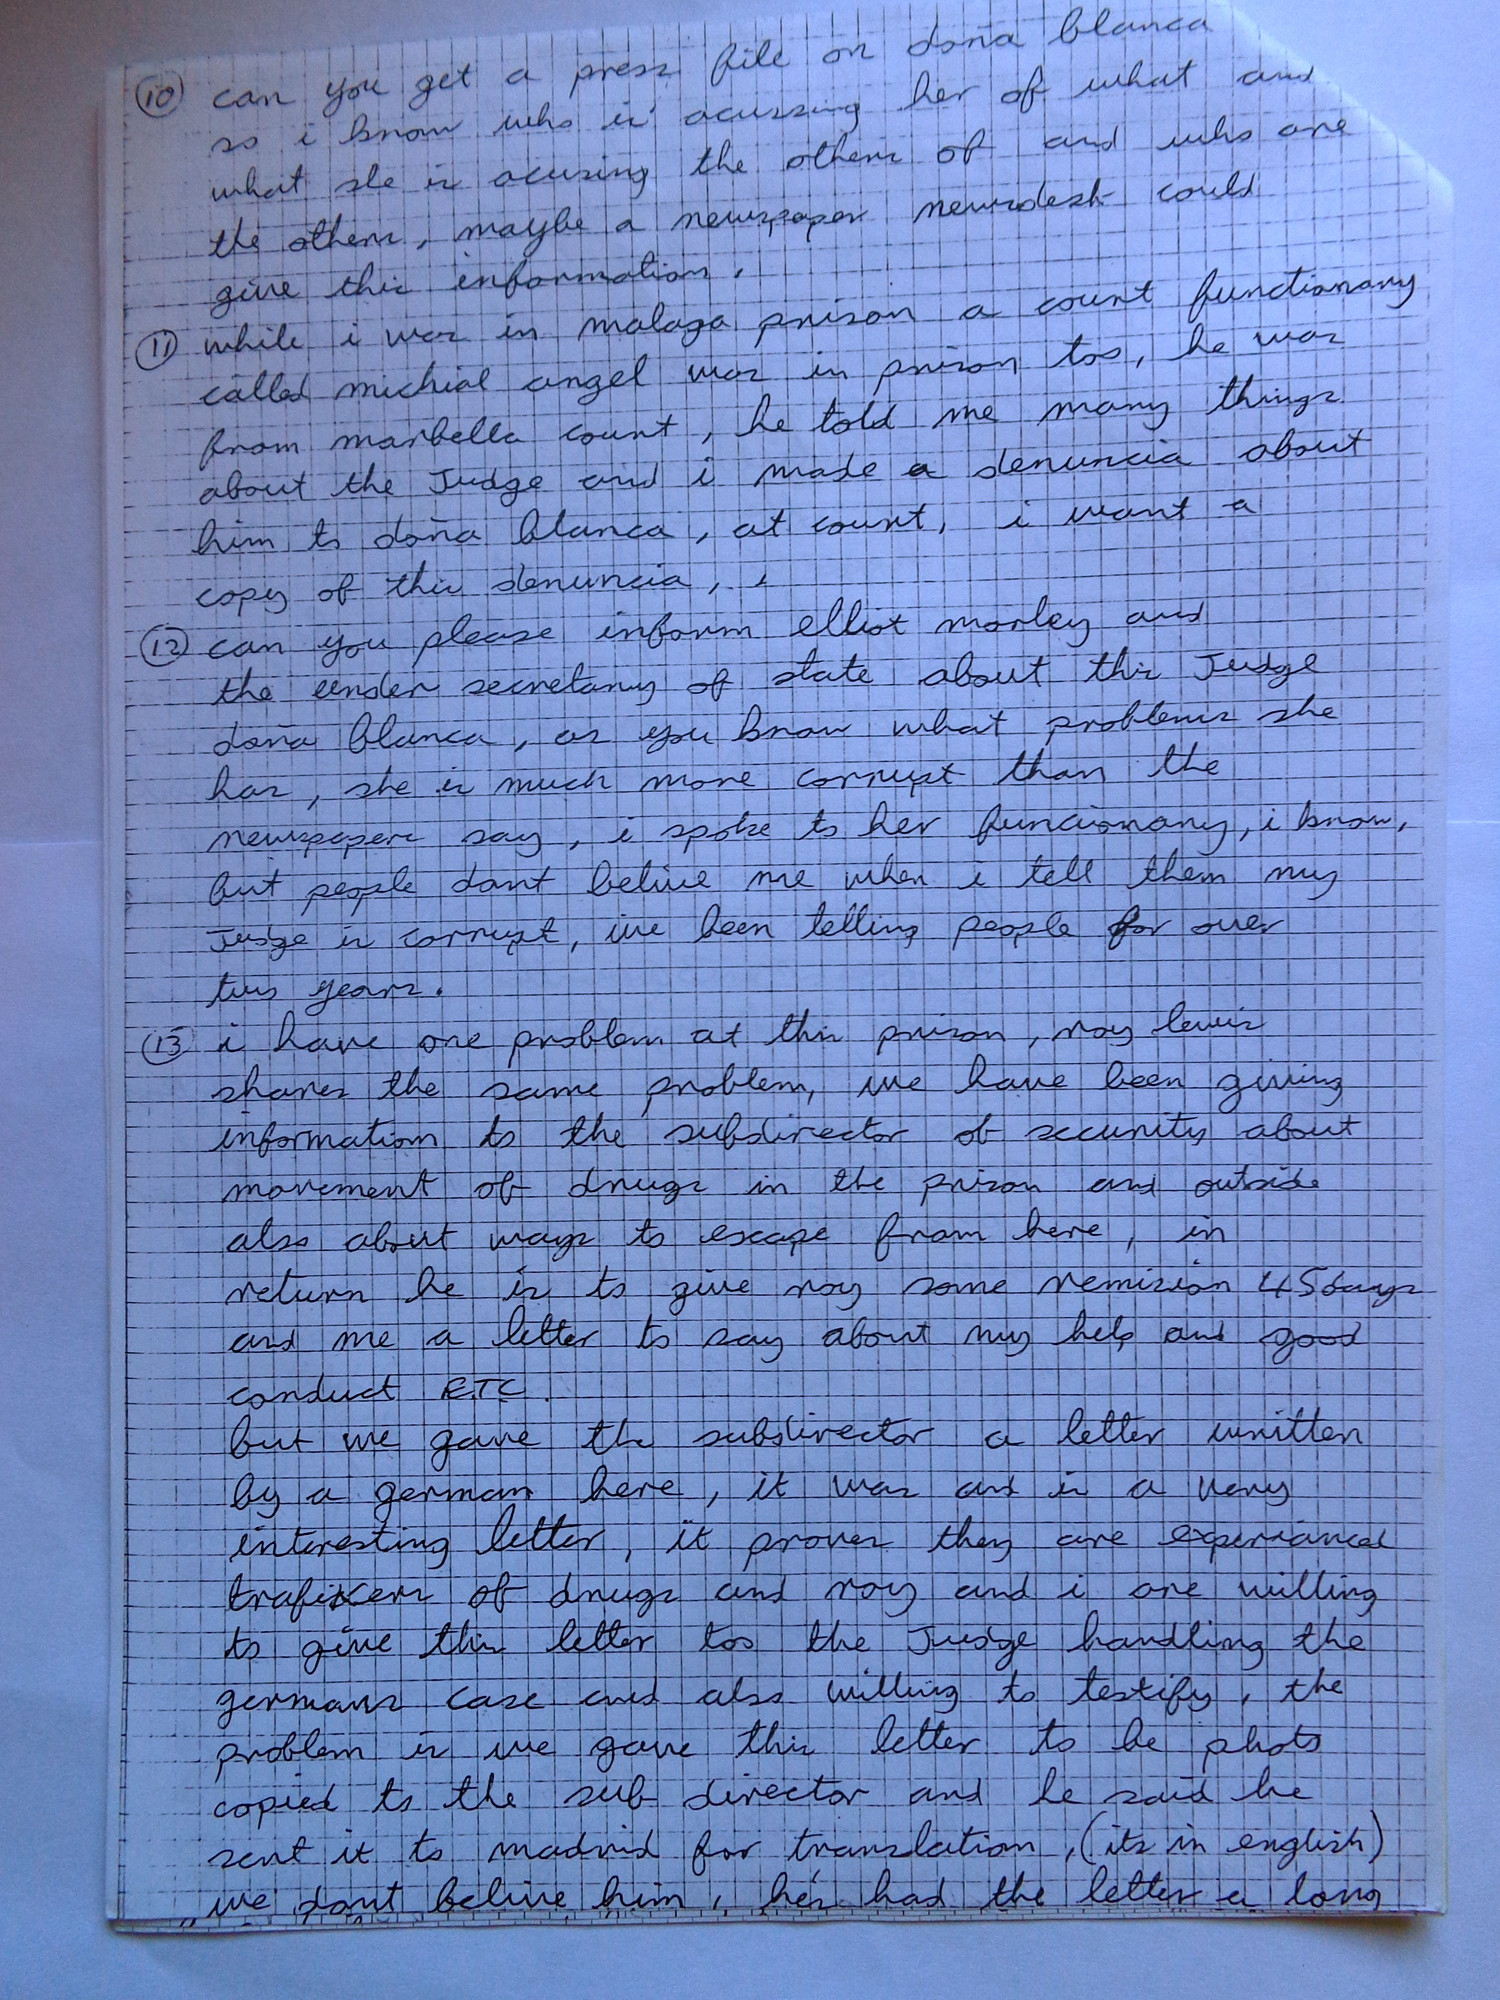 (10) can you get a press file on doña blanca
so i know who is acussing her of what and
what she is acusing the others of and who are
the others, maybe a newspaper newsdesk could
give this information.
(11) while i was in malaga prison a court functionary
called michial angel was in prison too, he was
from marbella court, he told me many things
about the Judge and i made a denuncia about
him to doña blanca, at court, i want a
copy of this denuncia,
(12) can you please inform elliot morley and
the under secretary of state about this Judge
doña blanca, as you know what problems she
has, she is much more corrupt than the
newspapers say, i spoke to her funcionary, i know,
but people dont belive me when i tell them my
Judge is corrupt, ive been telling people for over
two years.
(13) i have one problem at this prison, roy lewis
shares the same problem, we have been giving
information to the subdirector of security about
movement of drugs in the prison and outside
also about ways to escape from here, in
return he is to give roy some remision 45 days
and me a letter to say about my help and good
conduct ETC.
but we gave the subdirector a letter written
by a german here, it was and is a very
interesting letter, it proves they are experianced
trafikers of drugs and roy and i are willing
to give this letter too the Judge handling the
germans case and also willing to testify, the
problem is we gave this letter to be photo
copied to the sub director and he said he
sent it to madrid for translation, (its in english)
we dont belive him, hes had the letter a long